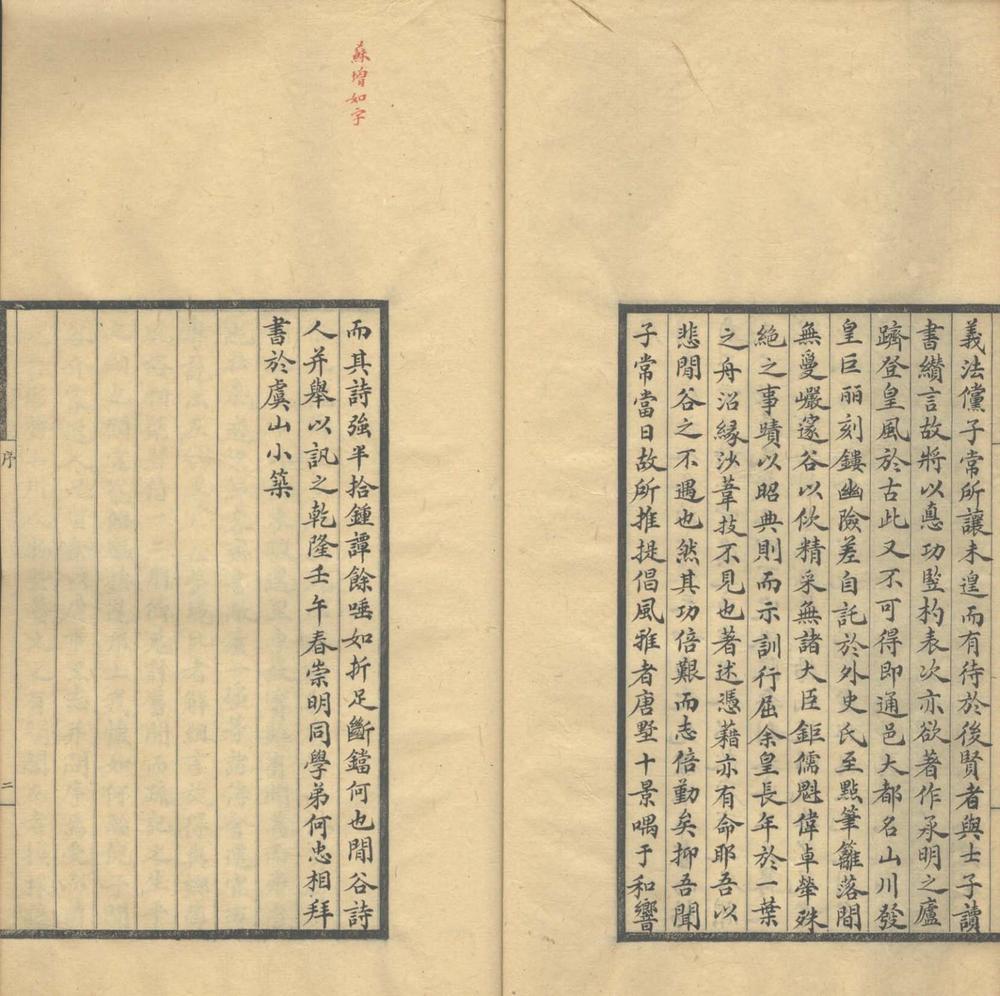 義法儻子常所讓未遑而有待於後賢者與士子讀
書纘言故將以惪功竪杓表次亦欲著作承明之廬
躋登皇風於古此又不可得即通邑大都名山川發
皇巨丽刻鏤幽險差自託於外史氏至點筆籬落間
無曼巗邃谷以佽精采無諸大臣鉅儒魁偉卓犖殊
絕之事蹟以昭典則而示訓行屈余皇長年於一葉
之舟沿緣沙葦技不見也著述憑藉亦有命耶吾以
悲閒谷之不遇也然其功倍艱而志倍勤矣抑吾聞
子常當日故所推挺倡風雅者唐墅十景喁于和響
蘇增如字
而其詩強半拾鍾譚餘唾如折足斷鐺何也閒谷詩
人并舉以訊之乾隆壬午春崇明同學弟何忠相拜
書於虞山小築
序
二